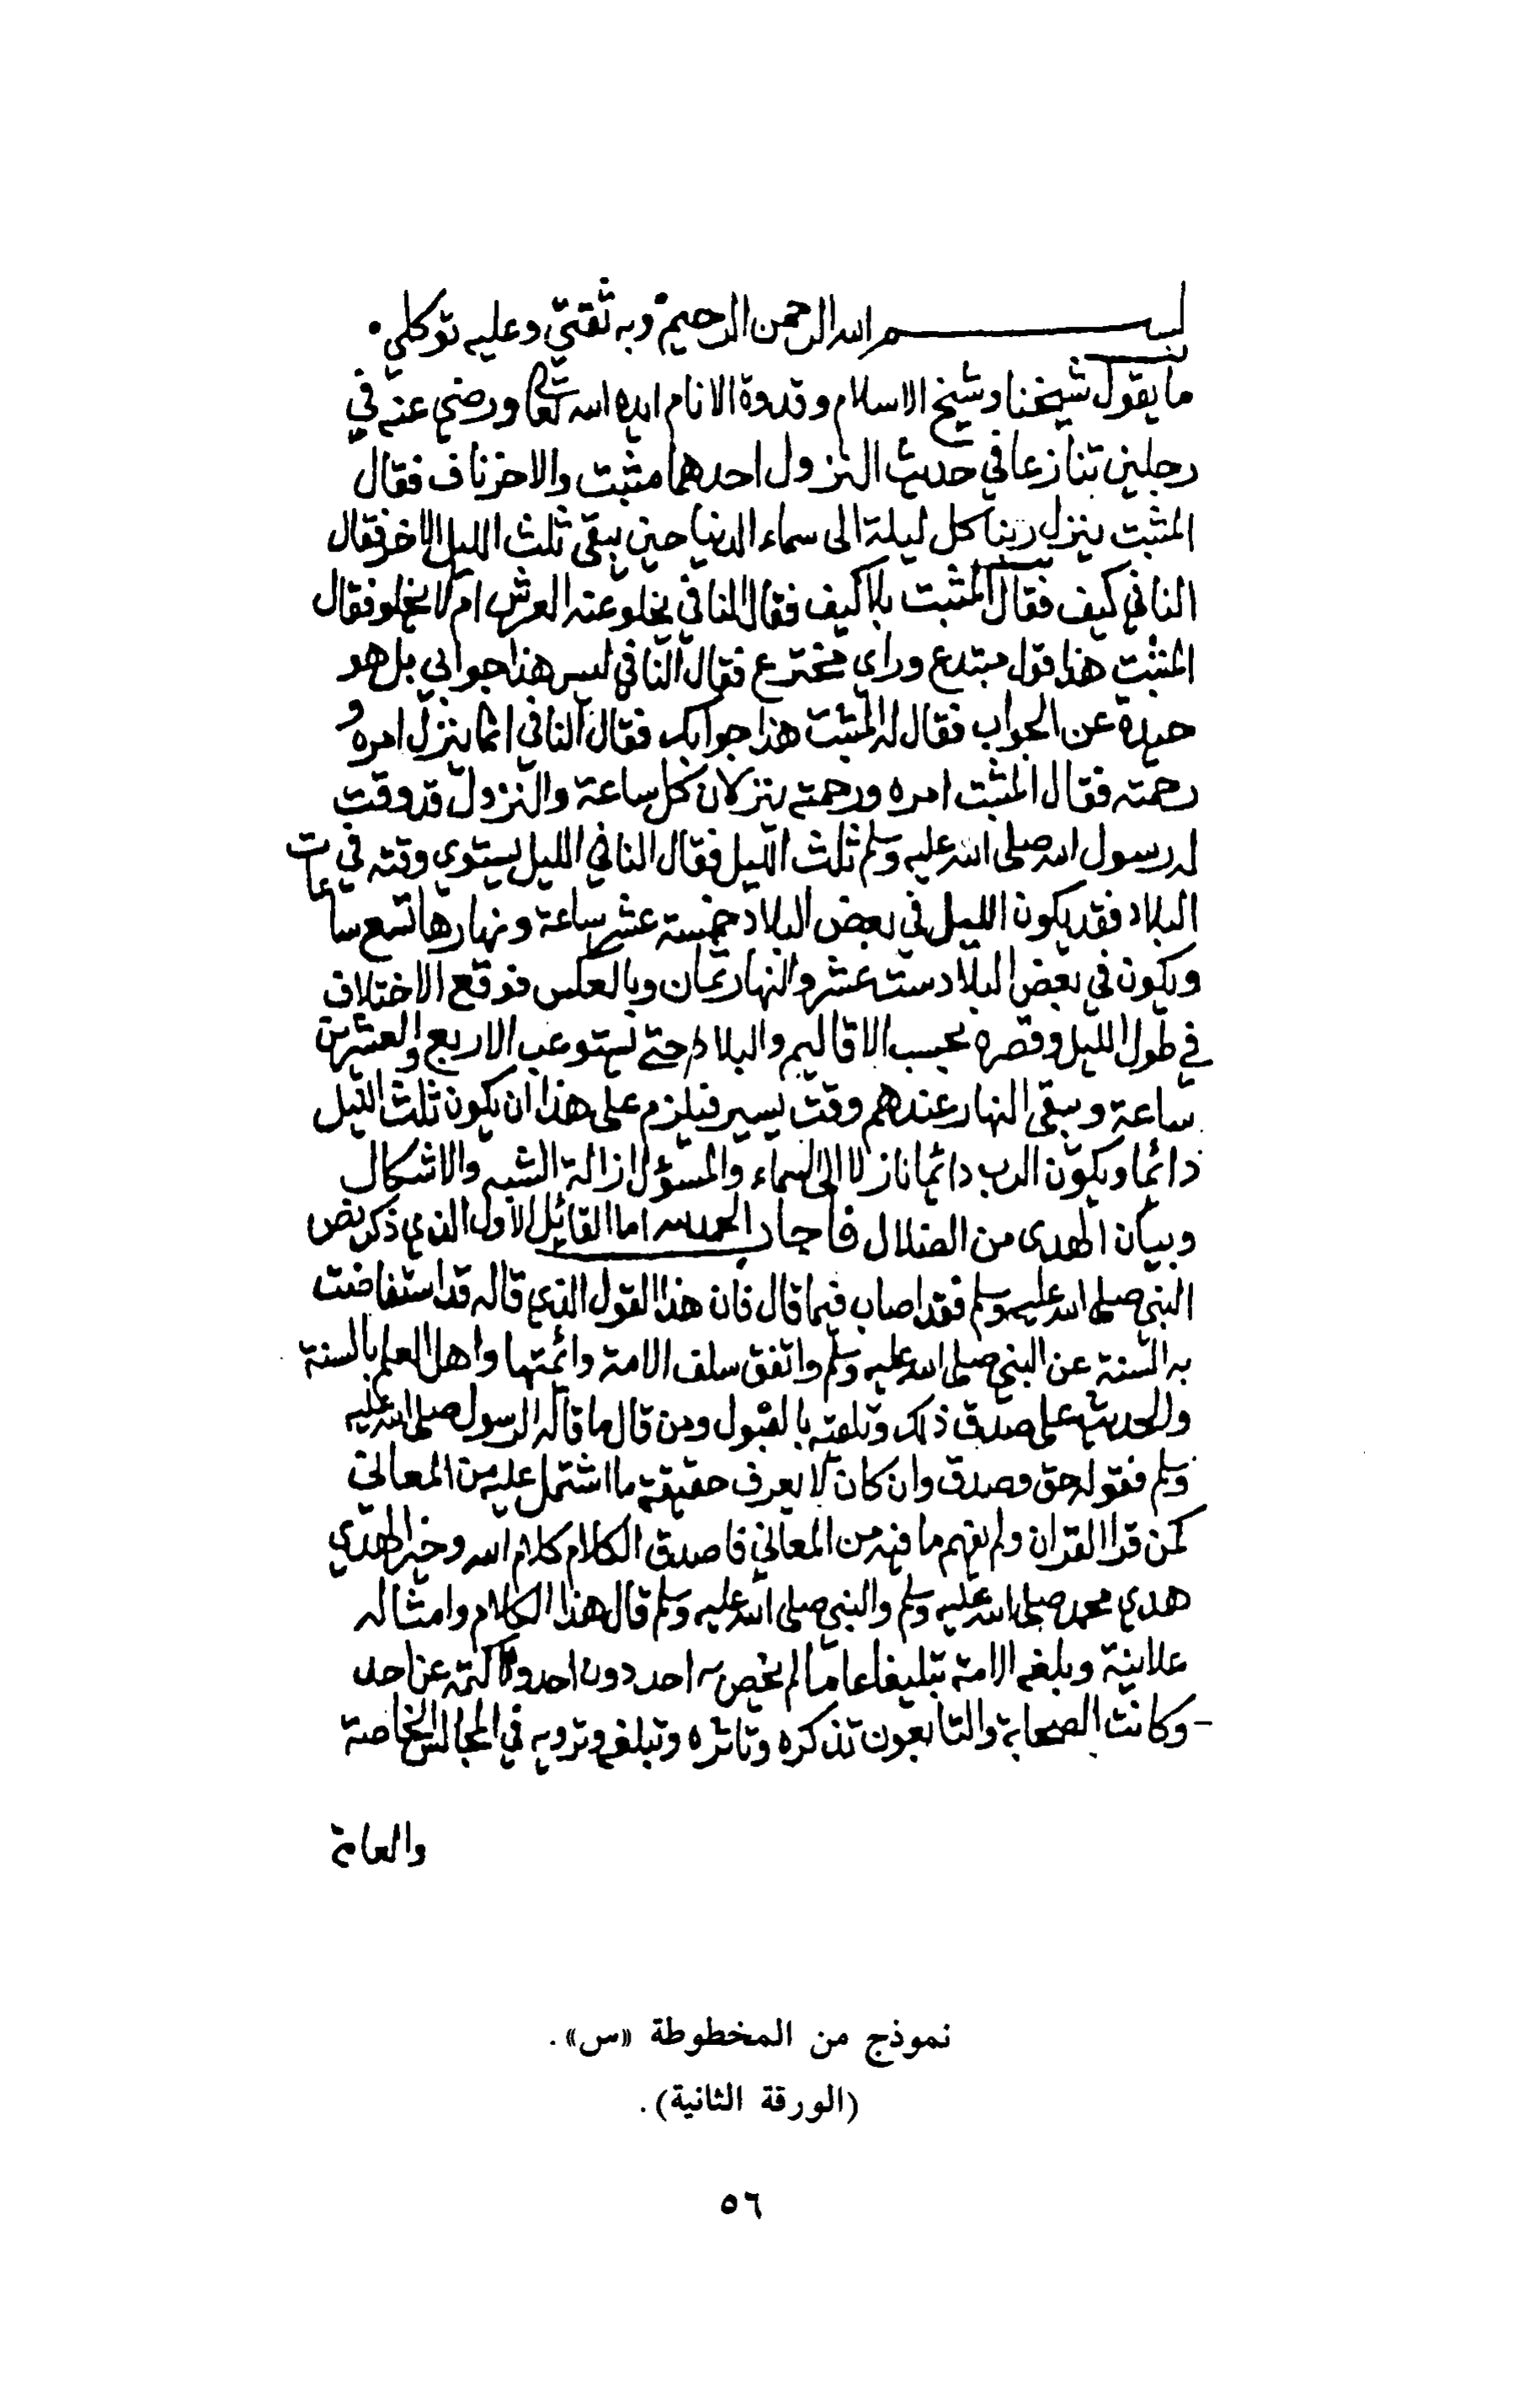 بسم الله الرحمن الرحيم وبه ثقتي وعليه توكلي.
ما يقول شيخنا وشيخ الاسلام وقدوة الانام ايده الله تعالى ورضي عنه في
رجلين تنازعا في حديث النزول احدهما مثبت والاخر ناف فقال
المثبت ينزل ربنا كل ليلة الى سماء الدنيا حين يبقى ثلث الليل الاخر فقال
النافي كيف فقال المثبت بلا كيف فقال النافي يخلو عنه العرش ام لا يخلو فقال
المثبت هذا قول مبتدع وراي مخترع فقال النافي ليس هذا جوابي بل هو
حيدة عن الجواب فقال له المثبت هذا جوابك فقال النافي انما ينزل امره و
رحمته فقال المثبت امره ورحمته ينزلان كل ساعة والنزول قد وقت
له رسول الله صلى الله عليه وسلم ثلث الليل فقال النافي الليل يستوي وقته في
البلاد فقد يكون الليل في بعض البلاد خمسة عشر ساعة ونهارها تسع ساعات
ويكون في بعض البلاد ست عشر والنهار ثمان وبالعكس فوقع الاختلاف
في طول الليل وقصره بحسب الاقاليم والبلاد حتى يستوعب الاربع والعشرين
ساعة ويبقى النهار عندهم وقت يسير فيلزم على هذا ان يكون ثلث الليل
دائما ويكون الرب دائما نازلا الى السماء والمسؤل ازالة الشبه والاشكال
وبيان الهدى من الضلال فاجاب الحمد لله اما القائل الاول الذي ذكر نص
النبي صلى الله عليه وسلم فقد اصاب فيما قال فان هذا القول الذي قاله قد استفاضت
به السنة عن النبي صلى الله عليه وسلم واتفق سلف الامة وائمتها واهل العلم بالسنة
والحديث على صدق ذلك وتلقيه بالقبول ومن قال ما قاله الرسول صلى الله عليه
وسلم فقوله حق وصدق وان كان لا يعرف حقيقة ما اشتمل عليه من المعاني
كمن قرا القران ولم يفهم ما فيه من المعاني فاصدق الكلام كلام الله وخير الهدي
هدي محمد صلى الله عليه وسلم والنبي صلى الله عليه وسلم قال هذا الكلام وامثاله
علانية وبلغه الامة تبليغا عاما لم يخص به احد دون احد ولا كتمه عن احد
وكانت الصحابة والتابعون تذكره وتاثره وتبلغه وترويه في المجالس الخاصة
والعامة
نموذج من المخطوطة «س».
(الورقة الثانية).
٥٦